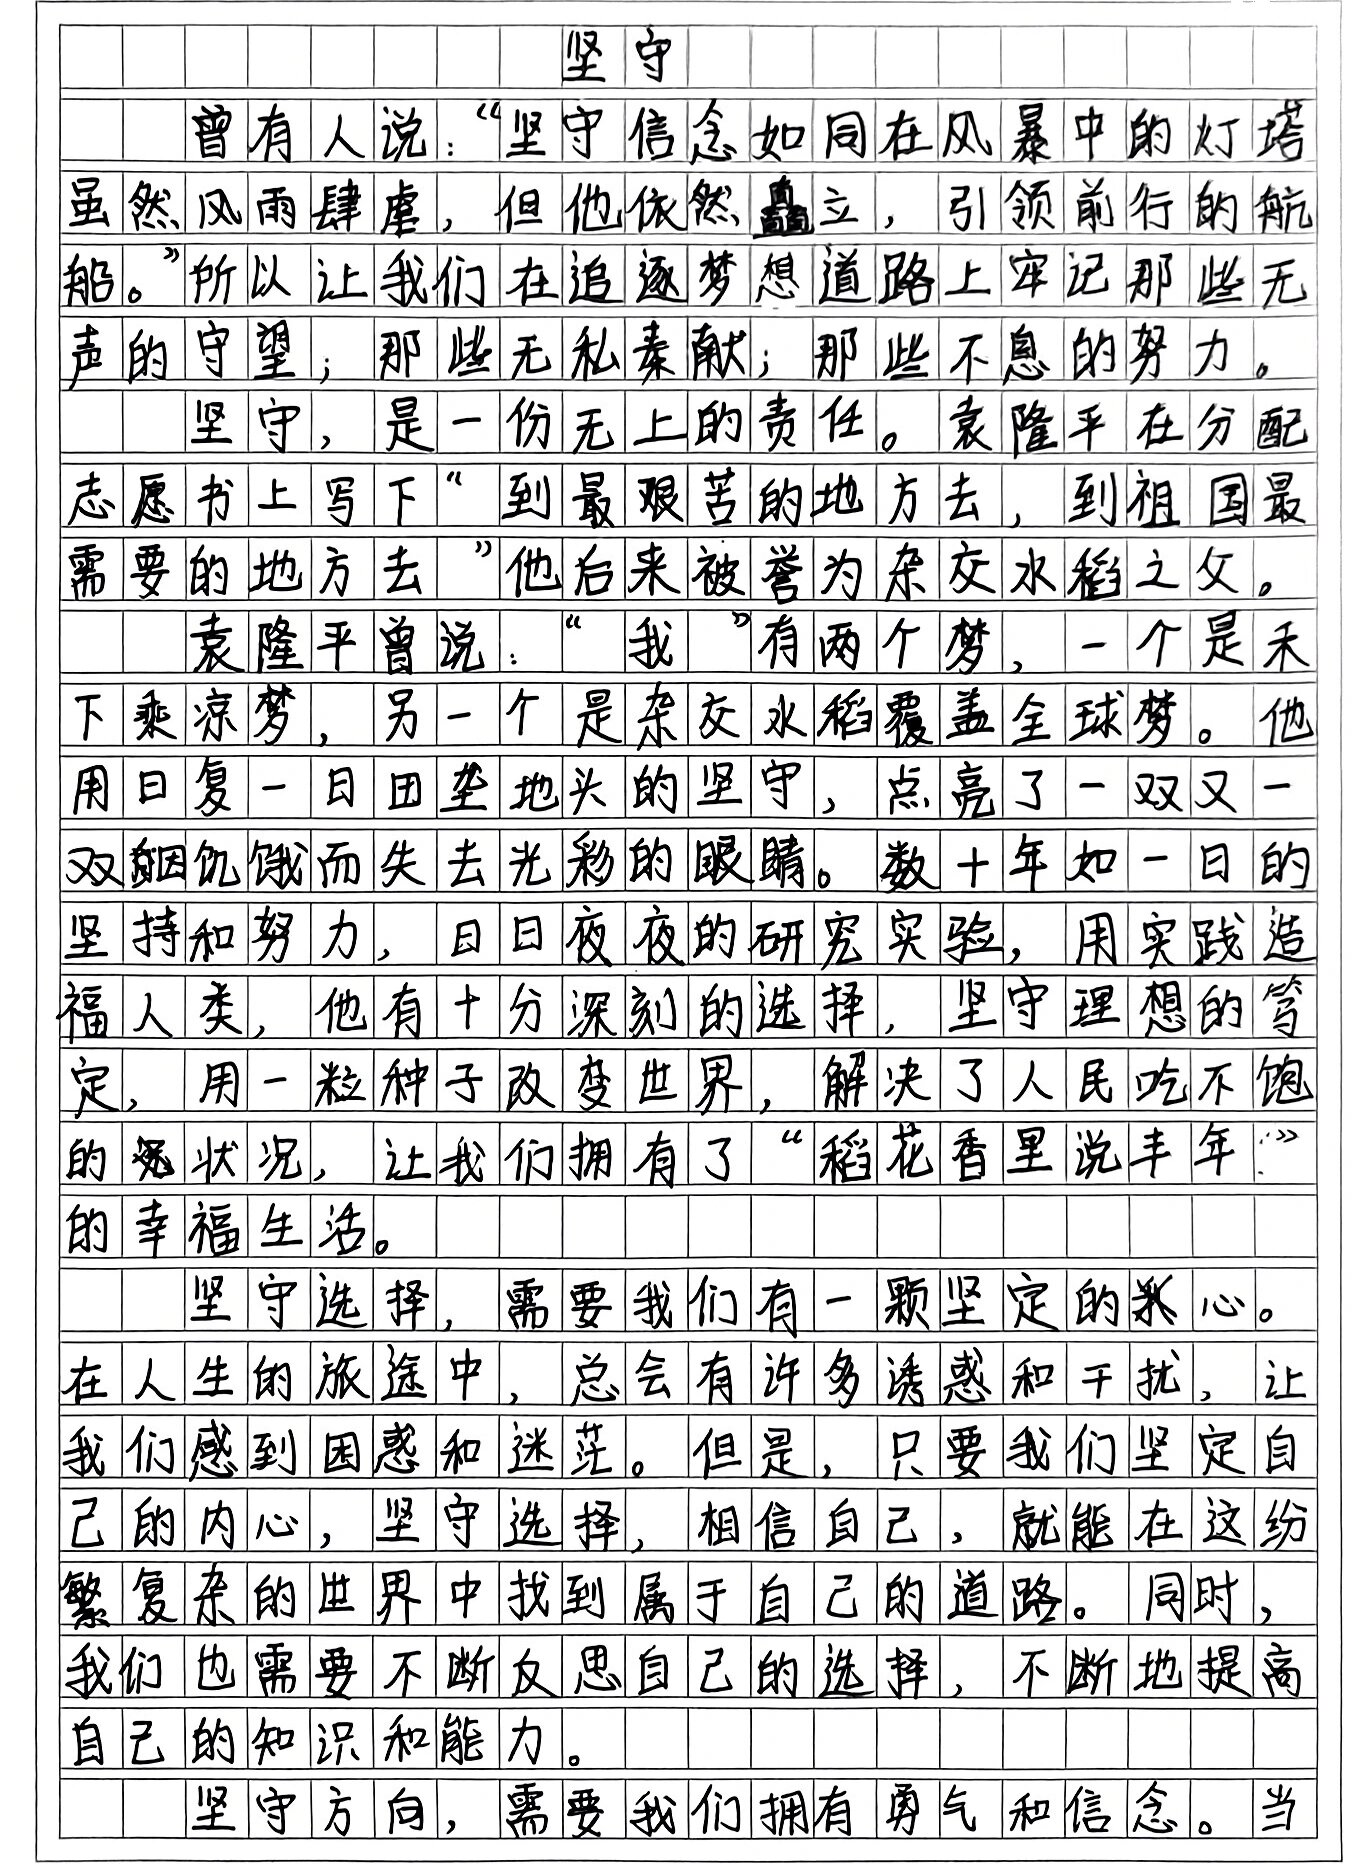 坚守
曾有人说：“坚守信念如同在风暴中的灯塔
虽然风雨肆虐，但他依然矗立，引领前行的航
船。”所以让我们在追逐梦想道路上牢记那些无
声的守望；那些无私奉献；那些不息的努力。
坚守，是一份无上的责任。袁隆平在分配
志愿书上写下“到最艰苦的地方去，到祖国最
需要的地方去”他后来被誉为杂交水稻之父。
袁隆平曾说：“我”有两个梦，一个是禾
下乘凉梦，另一个是杂交水稻覆盖全球梦。他
用日复一日田垄地头的坚守，点亮了一双又一
双因饥饿而失去光彩的眼睛。数十年如一日的
坚持和努力，日日夜夜的研究实验，用实践造
福人类，他有十分深刻的选择，坚守理想的笃
定，用一粒种子改变世界，解决了人民吃不饱
的状况，让我们拥有了“稻花香里说丰年”
的幸福生活。
坚守选择，需要我们有一颗坚定的心。
在人生的旅途中，总会有许多诱惑和干扰，让
我们感到困惑和迷茫。但是，只要我们坚定自
己的内心，坚守选择，相信自己，就能在这纷
繁复杂的世界中找到属于自己的道路。同时，
我们也需要不断反思自己的选择，不断地提高
自己的知识和能力。
坚守方向，需要我们拥有勇气和信念。当